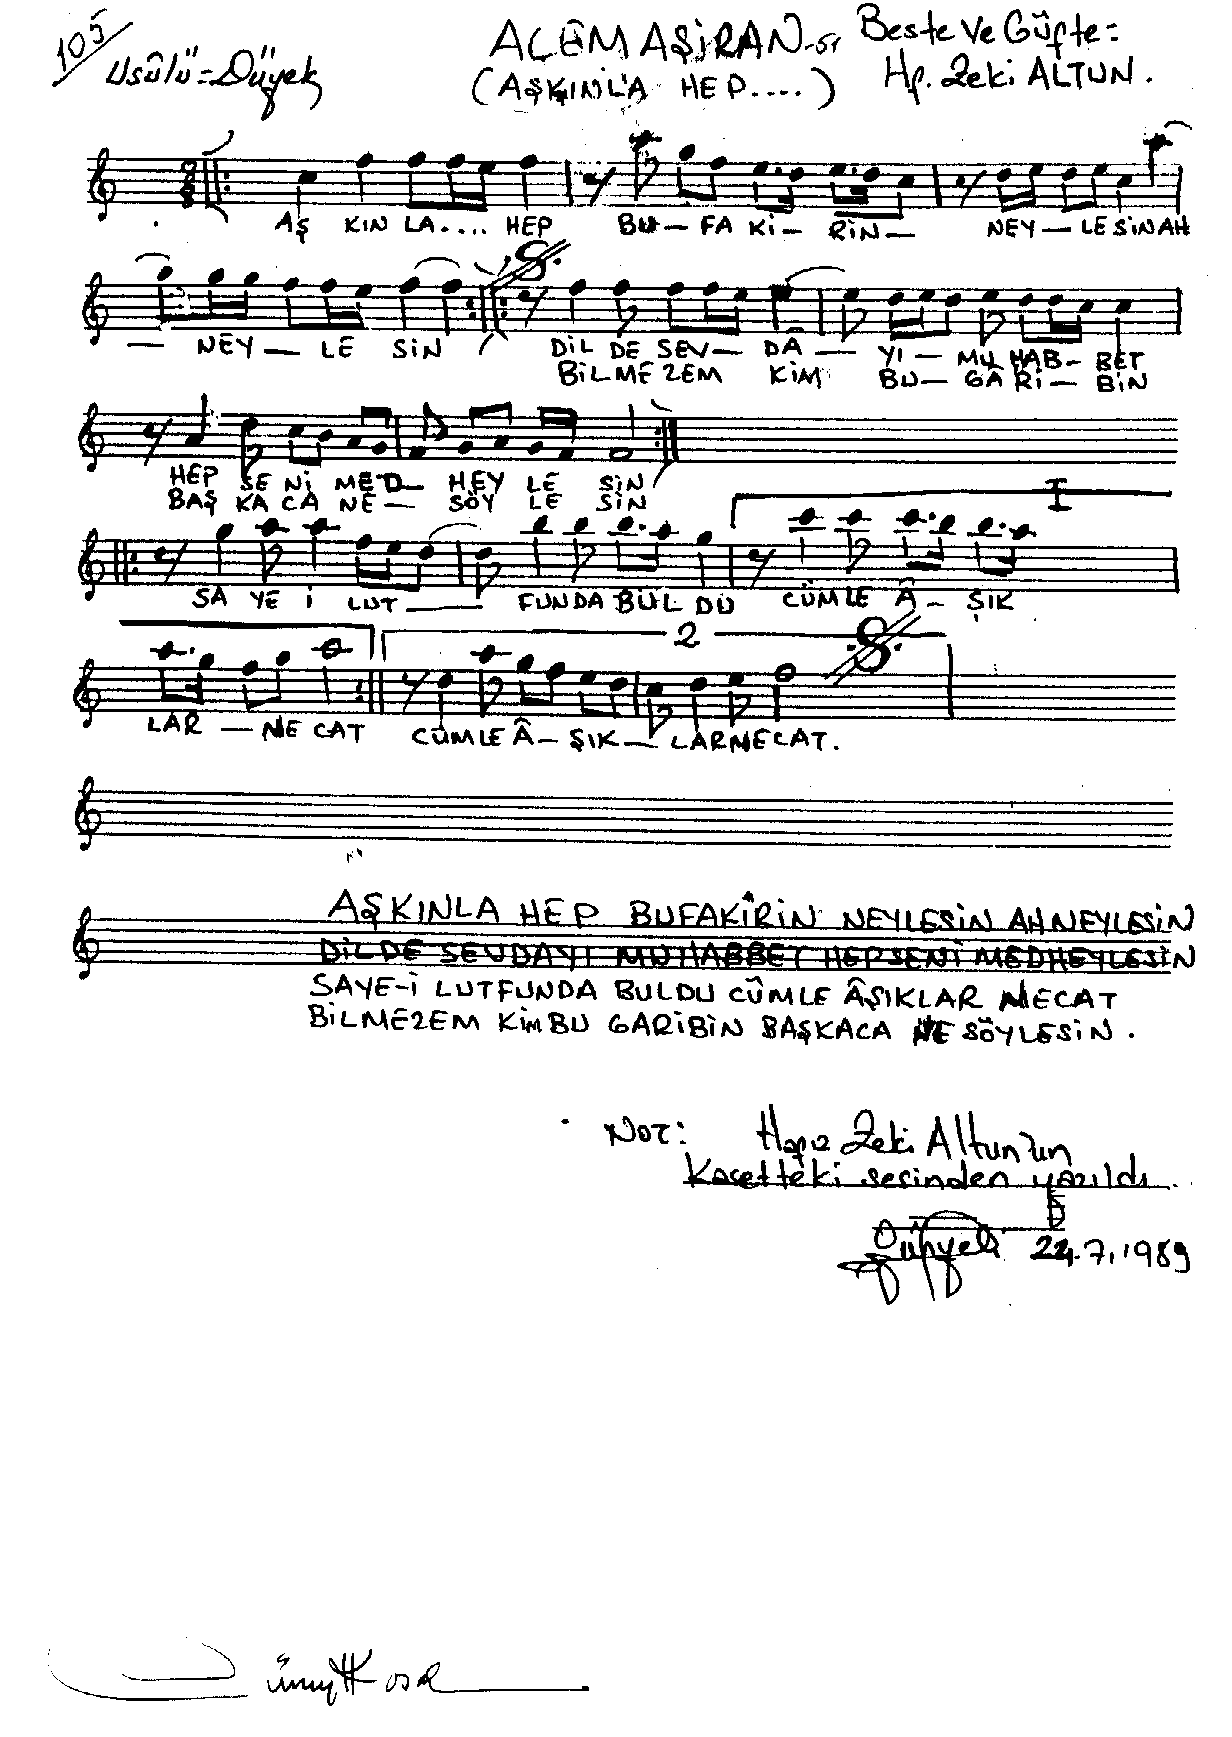 105
Usûlü = Düyek
ACEMAŞİRAN
(AŞKINLA HEP....)
Beste ve Güfte =
Hf. Zeki ALTUN.
AŞ KIN LA.... HEP BU — FA Kİ — RİN — NEY — LE SİN AH
— NEY — LE SİN DİL DE SEV — DÂ — YI — MU HAB — BET
BİLMEZEM KİM BU — GA Rİ — BİN
HEP SE Nİ MED — HEY LE SİN
BAŞ KA CA NE — SÖY LE SİN
I
SA YE İ LUT — FUNDA BUL DU CÜMLE Â — ŞIK
2
LAR — NE CAT CÜMLE Â — ŞIK — LARNECAT.
AŞKINLA HEP BUFAKÎRİN NEYLESİN AH NEYLESİN
DİLDE SEVDAYI MUHABBET HEP SENİ MEDHEYLESİN
SAYE-İ LUTFUNDA BULDU CÜMLE ÂŞIKLAR NECAT
BİLMEZEM KİM BU GARİBİN BAŞKACA NE SÖYLESİN.
NOT: Hafız Zeki Altun'un
Kasetteki sesinden yazıldı.
22.7.1989